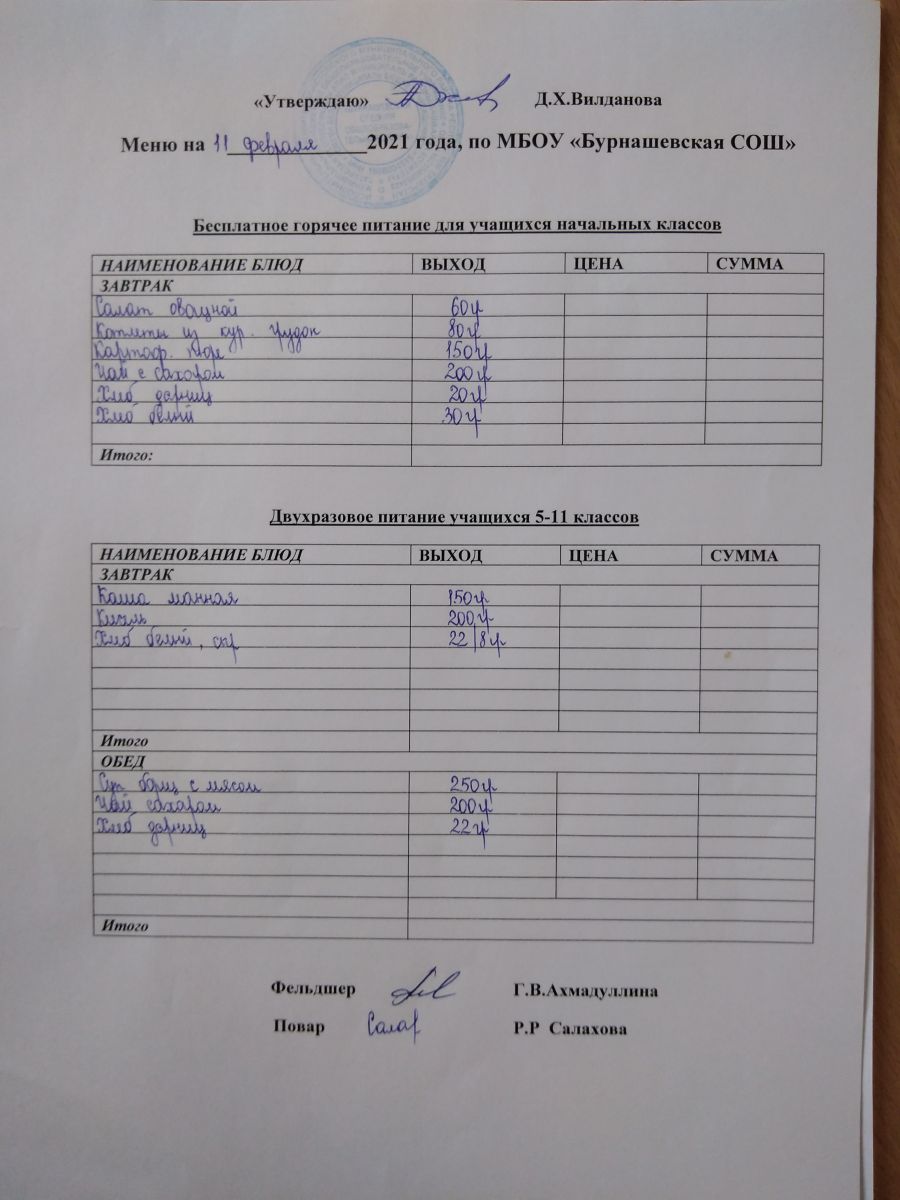 «Утверждаю» Д.Х.Вилданова
Меню на 11 февраля 2021 года, по МБОУ «Бурнашевская СОШ»
Бесплатное горячее питание для учащихся начальных классов
НАИМЕНОВАНИЕ БЛЮД ВЫХОД ЦЕНА СУММА
ЗАВТРАК
Салат овощной 60г
Котлеты из кур. грудок 80г
Картоф. пюре 150г
Чай с сахаром 200г
Хлеб дарниц 20г
Хлеб белый 30г
Итого:
Двухразовое питание учащихся 5-11 классов
НАИМЕНОВАНИЕ БЛЮД ВЫХОД ЦЕНА СУММА
ЗАВТРАК
Каша манная 150г
Кисель 200г
Хлеб белый, сыр 22/8г
Итого
ОБЕД
Суп борщ с мясом 250г
Чай сахаром 200г
Хлеб дарниц 22г
Итого
Фельдшер Г.В.Ахмадуллина
Повар Салах Р.Р Салахова